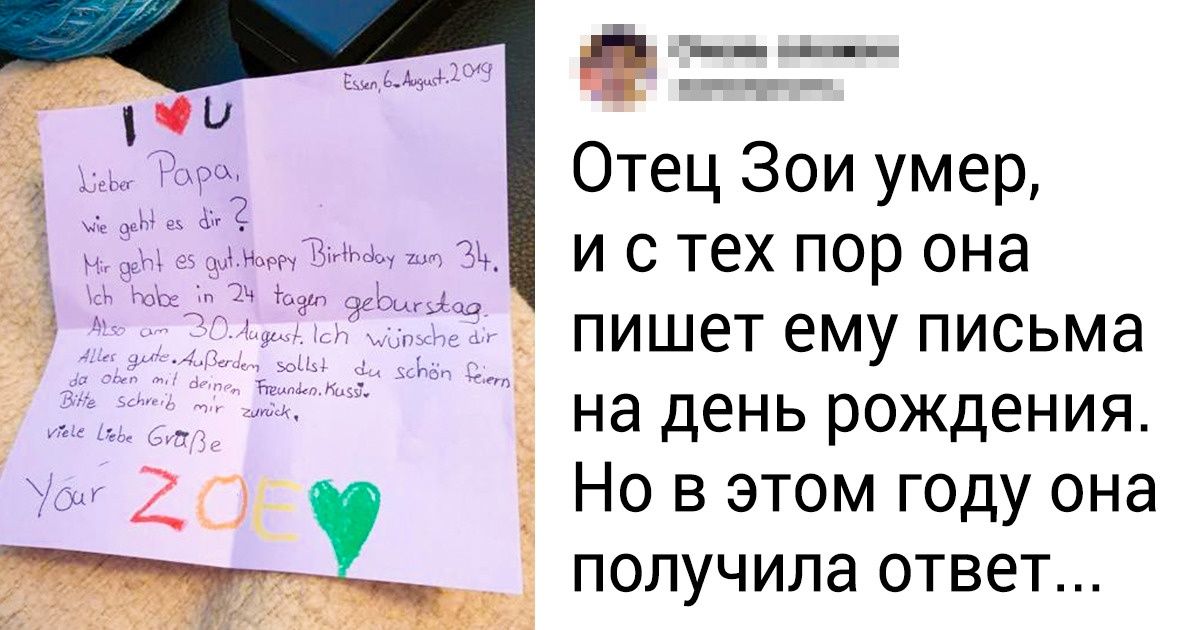 Essen, 6. August. 2019
I ❤ U
Lieber Papa,
wie geht es dir?
Mir geht es gut. Happy Birthday zum 34.
Ich habe in 24 tagen geburstag.
Also am 30. August. Ich wünsche dir
Alles gute. Außerdem sollst du schön feiern
da oben mit deinen Freunden. Kussi.
Bitte schreib mir zurück.
viele Liebe Grüße
Your ZOE
Отец Зои умер,
и с тех пор она
пишет ему письма
на день рождения.
Но в этом году она
получила ответ...